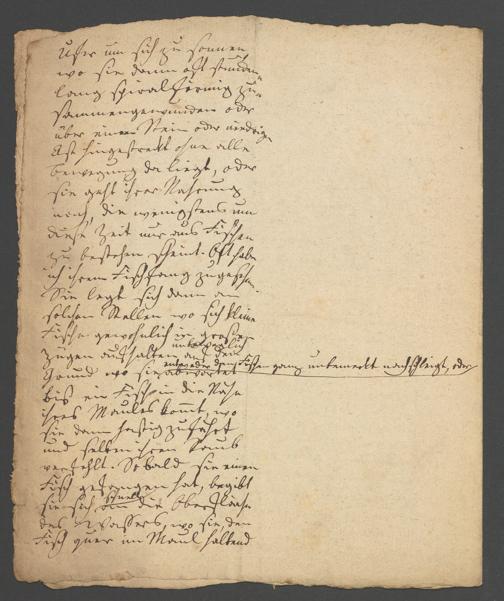 Ufer um sich zu sonnen
wo sie dann oft stunden-
lang spiralförmig zu-
sammengewunden oder
über einen Stein oder niedrige
Ast hingestreckt ohne alle
bewegung da liegt, oder
sie geht ihrer Nahrung
nach, die wenigstens um
diese Zeit nur aus Fischen
zu bestehen scheint. Oft habe
ich ihrem Fischfang zugesehn.
Sie legt sich dann an
solchen Stellen wo sich kleine
Fische gewohnlich in grosse
Zügen aufhalten auf den
Grund wo sie
entweder den Fischen ganz unbemerkt nachschleigt, oder
abwartet
bis ein Fisch in die Nähe
ihres Maules kommt, wo
sie dann hastig zufährt
und selten ihren Raub
verfehlt. Sobald sie einen
Fisch gefangen hat, begibt
sie sich schnell an die Oberfläche
des Wassers, wo sie, den
Fisch quer im Maul haltend